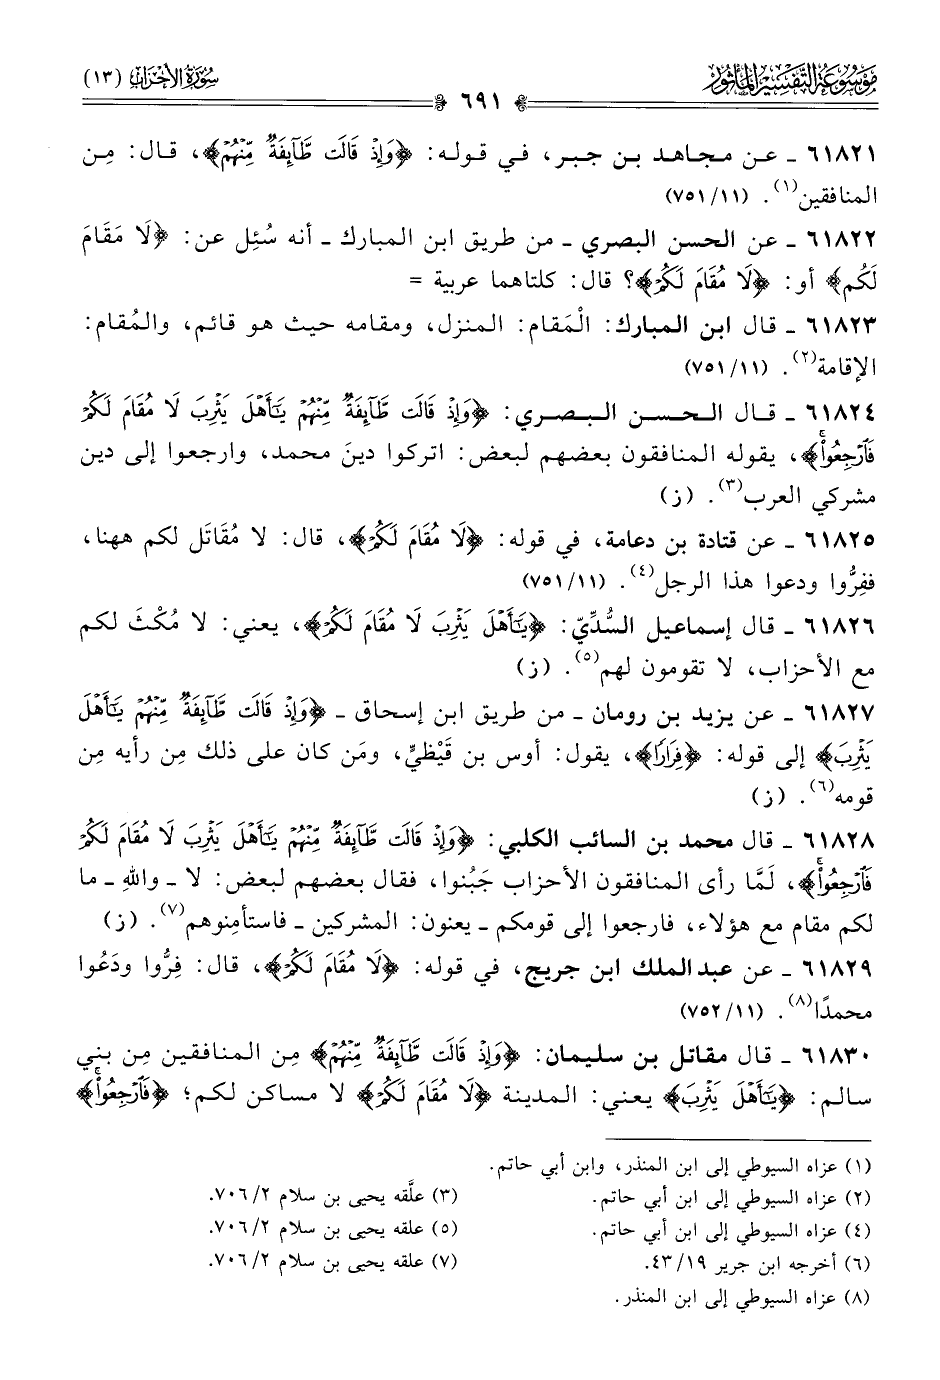 مَوْسُوعَة التَّفْسِير المَأْثُور
سُورَةُ الأَحْزَابِ (١٣)
٦٩١
٦١٨٢١ ـ عن مجاهد بن جبر، في قوله: ﴿وَإِذْ قَالَت طَّآئِفَةٌ مِّنْهُمْ﴾، قال: مِن
المنافقين(١). (١١/ ٧٥١)
٦١٨٢٢ ـ عن الحسن البصري ـ من طريق ابن المبارك ـ أنه سُئِل عن: ﴿لَا مَقَامَ
لَكُم﴾ أو: ﴿لَا مُقَامَ لَكُمْ﴾؟ قال: كلتاهما عربية =
٦١٨٢٣ ـ قال ابن المبارك: الْمَقام: المنزل، ومقامه حيث هو قائم، والمُقام:
الإقامة(٢). (١١/ ٧٥١)
٦١٨٢٤ ـ قال الحسن البصري: ﴿وَإِذْ قَالَت طَّآئِفَةٌ مِّنْهُمْ يَٰٓأَهْلَ يَثْرِبَ لَا مُقَامَ لَكُمْ
فَٱرْجِعُوا۟﴾، يقوله المنافقون بعضهم لبعض: اتركوا دينَ محمد، وارجعوا إلى دين
مشركي العرب(٣). (ز)
٦١٨٢٥ ـ عن قتادة بن دعامة، في قوله: ﴿لَا مُقَامَ لَكُمْ﴾، قال: لا مُقَاتَل لكم ههنا،
ففِرُّوا ودعوا هذا الرجل(٤). (١١/ ٧٥١)
٦١٨٢٦ ـ قال إسماعيل السُّدِّيّ: ﴿يَٰٓأَهْلَ يَثْرِبَ لَا مُقَامَ لَكُمْ﴾، يعني: لا مُكْثَ لكم
مع الأحزاب، لا تقومون لهم(٥). (ز)
٦١٨٢٧ ـ عن يزيد بن رومان ـ من طريق ابن إسحاق ـ ﴿وَإِذْ قَالَت طَّآئِفَةٌ مِّنْهُمْ يَٰٓأَهْلَ
يَثْرِبَ﴾ إلى قوله: ﴿فِرَارًا﴾، يقول: أوس بن قَيْظيٍّ، ومَن كان على ذلك مِن رأيه مِن
قومه(٦). (ز)
٦١٨٢٨ ـ قال محمد بن السائب الكلبي: ﴿وَإِذْ قَالَت طَّآئِفَةٌ مِّنْهُمْ يَٰٓأَهْلَ يَثْرِبَ لَا مُقَامَ لَكُمْ
فَٱرْجِعُوا۟﴾، لَمَّا رأى المنافقون الأحزاب جَبُنوا، فقال بعضهم لبعض: لا ـ واللهِ ـ ما
لكم مقام مع هؤلاء، فارجعوا إلى قومكم ـ يعنون: المشركين ـ فاستأمِنوهم(٧). (ز)
٦١٨٢٩ ـ عن عبد الملك ابن جريج، في قوله: ﴿لَا مُقَامَ لَكُمْ﴾، قال: فِرُّوا ودَعُوا
محمدًا(٨). (١١/ ٧٥٢)
٦١٨٣٠ ـ قال مقاتل بن سليمان: ﴿وَإِذْ قَالَت طَّآئِفَةٌ مِّنْهُمْ﴾ مِن المنافقين مِن بني
سالم: ﴿يَٰٓأَهْلَ يَثْرِبَ﴾ يعني: المدينة ﴿لَا مُقَامَ لَكُمْ﴾ لا مساكن لكم؛ ﴿فَٱرْجِعُوا۟﴾
(١) عزاه السيوطي إلى ابن المنذر، وابن أبي حاتم.
(٢) عزاه السيوطي إلى ابن أبي حاتم. (٣) علَّقه يحيى بن سلام ٢/ ٧٠٦.
(٤) عزاه السيوطي إلى ابن أبي حاتم. (٥) علقه يحيى بن سلام ٢/ ٧٠٦.
(٦) أخرجه ابن جرير ١٩/ ٤٣. (٧) علقه يحيى بن سلام ٢/ ٧٠٦.
(٨) عزاه السيوطي إلى ابن المنذر.